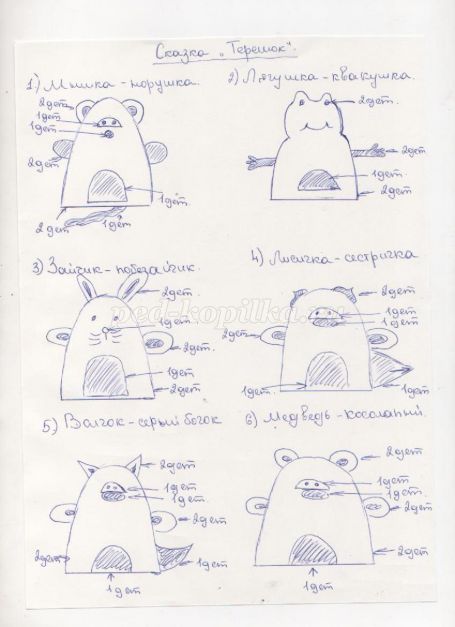 Сказка „Теремок".
1) Мышка-норушка.
2дет
1дет
1дет
2дет
1дет
2дет
1дет
2) Лягушка-квакушка.
2дет.
2дет
1дет.
2дет
3) Зайчик-побегайчик.
2дет.
1дет.
2дет.
1дет
2дет.
ped-kopilka.
4) Лисичка-сестричка
2дет.
1дет.
1дет.
2дет
1дет.
1дет.
5) Волчок-серый бочок
2дет
1дет
1дет.
2дет
2дет
1дет
1дет
6) Медведь-косолапый.
2дет
1дет
1дет.
2дет
2дет
1дет